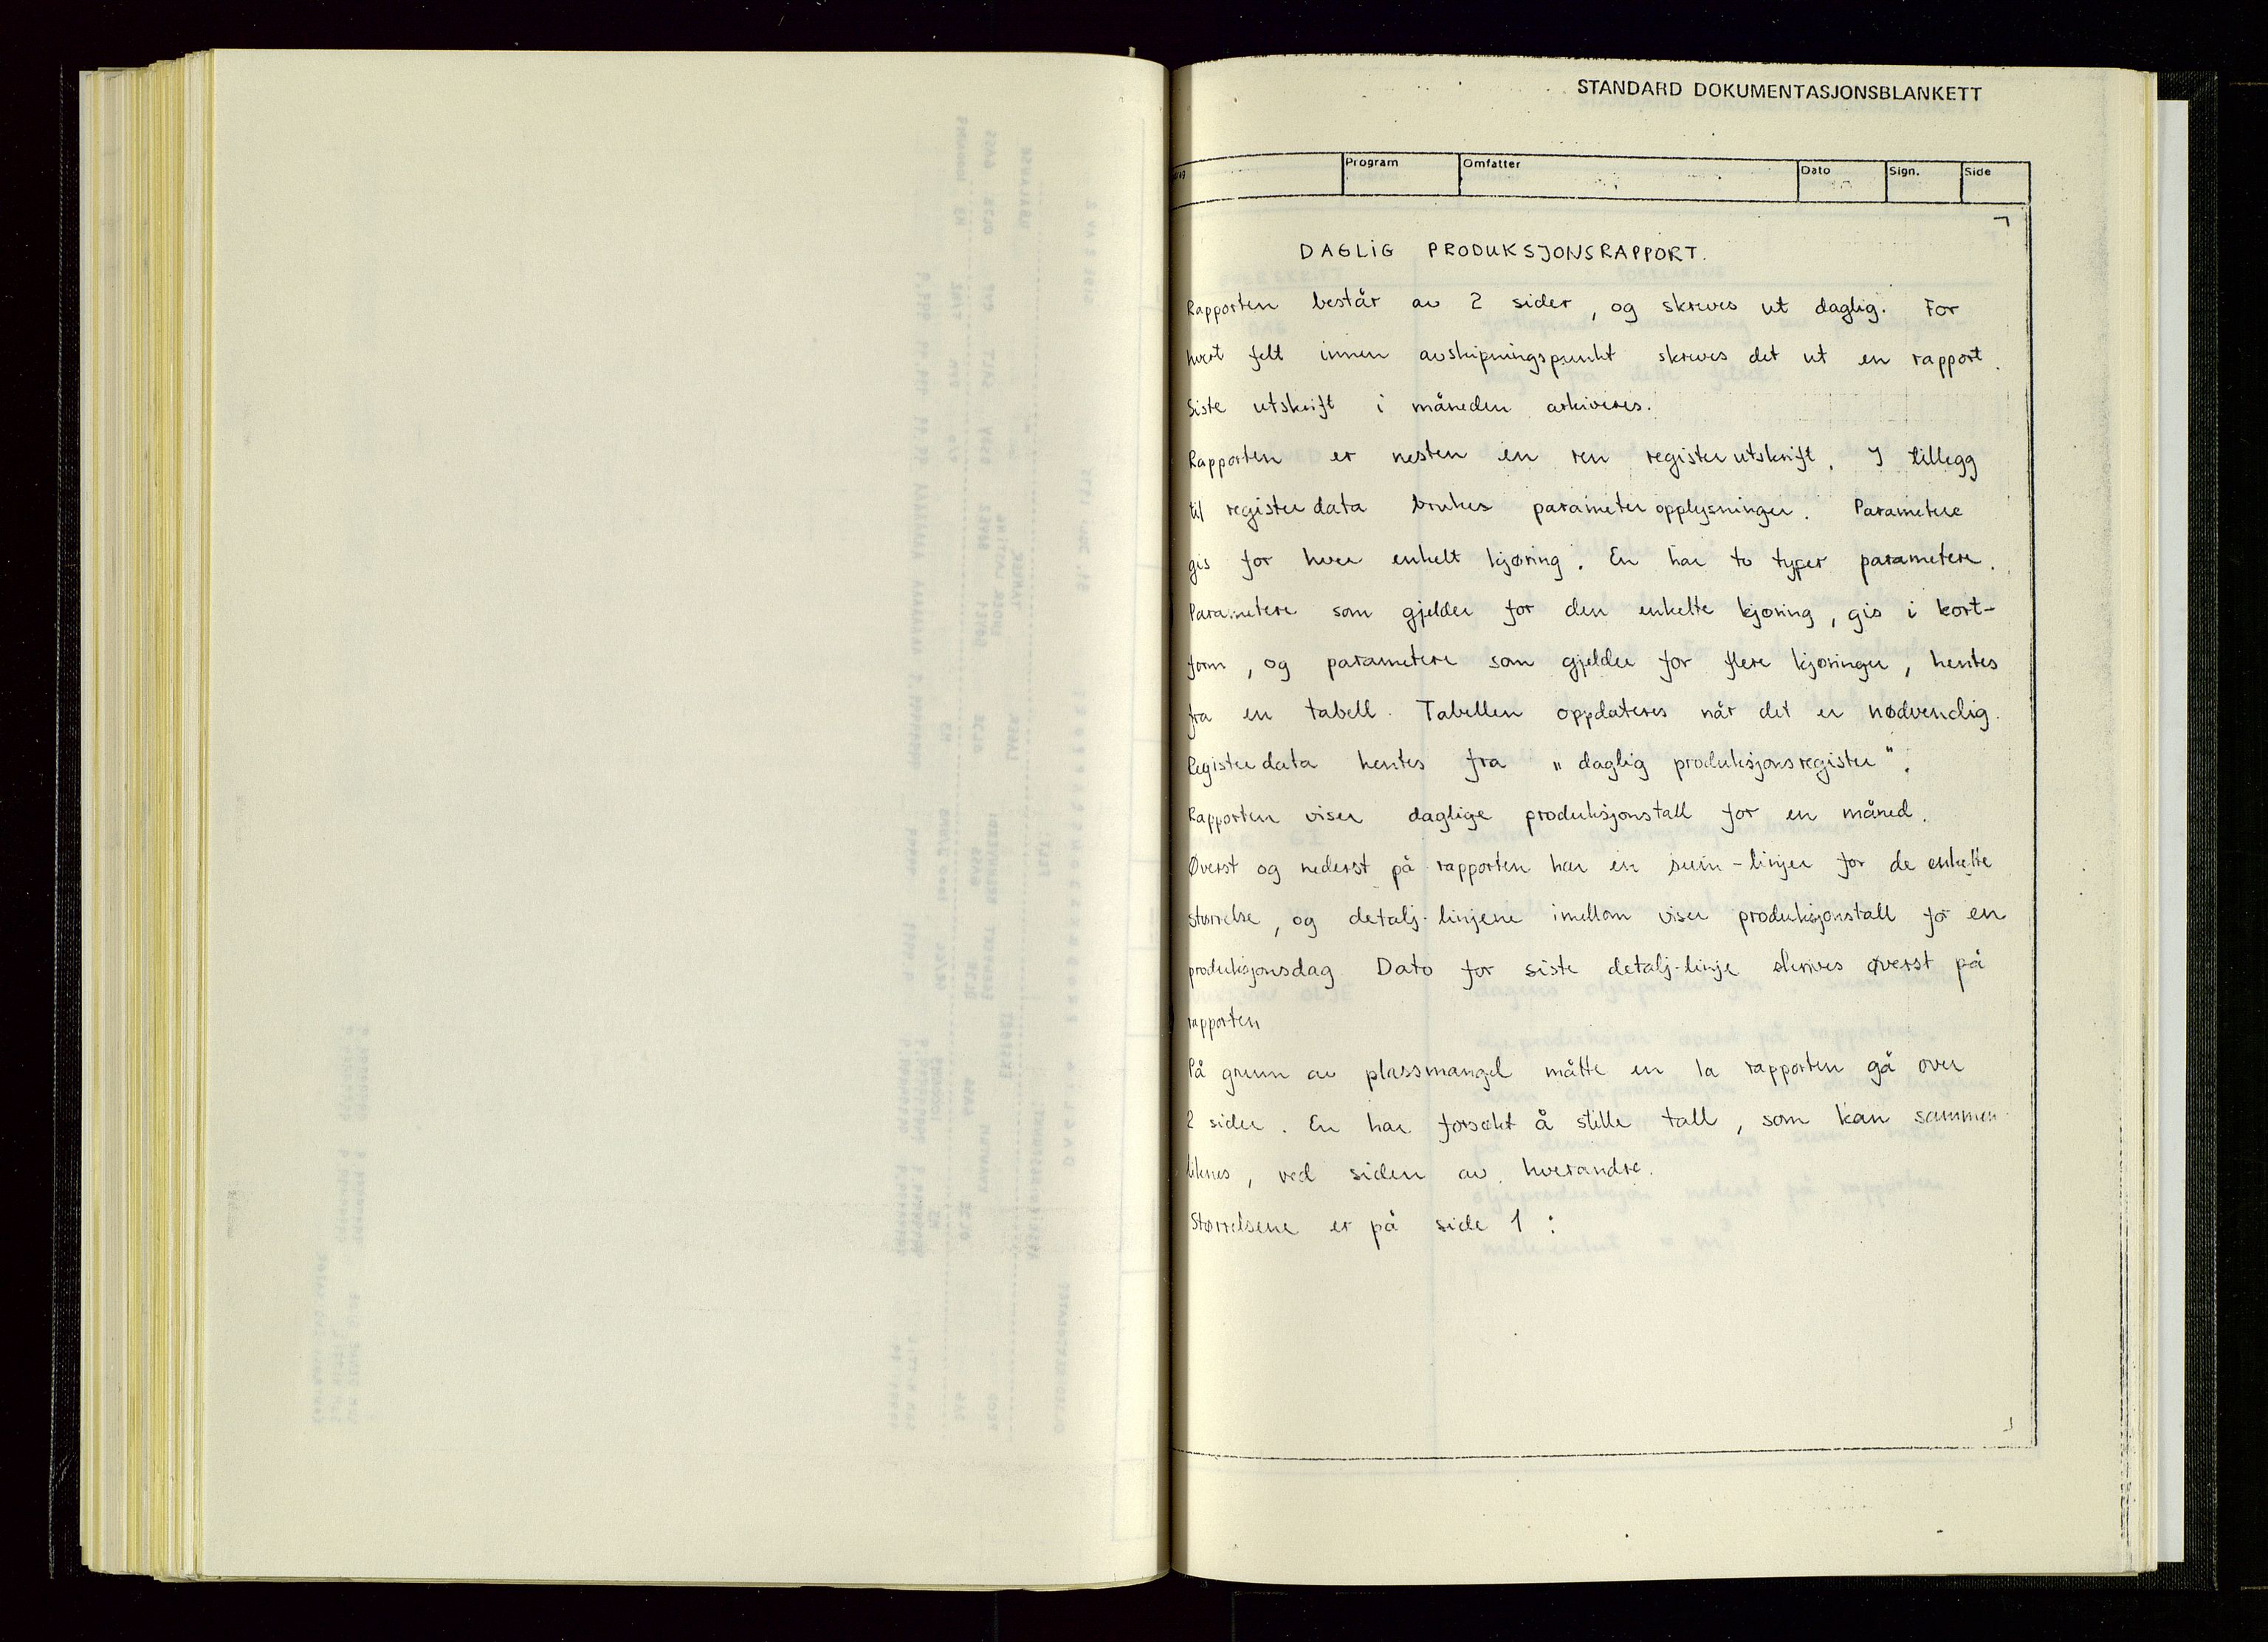 STANDARD DOKUMENTASJONSBLANKETT
Program Omfatter Dato Sign. Side
DAGLIG PRODUKSJONSRAPPORT.
Rapporten består av 2 sider, og skrives ut daglig. For
hvert felt innen avskipningspunkt skrives det ut en rapport.
Siste utskrift i måneden arkiveres.
Rapporten er nesten en ren registerutskrift. I tillegg
til registerdata brukes parameteropplysninger. Parametere
gis for hver enkelt kjøring. En har to typer parametere.
Parametere som gjelder for den enkelte kjøring, gis i kort-
form, og parametere som gjelder for flere kjøringer, hentes
fra en tabell. Tabellen oppdateres når det er nødvendig.
Registerdata hentes fra "daglig produksjonsregister".
Rapporten viser daglige produksjonstall for en måned.
Øverst og nederst på rapporten har en sum-linjer for de enkelte
størrelse, og detalj-linjene imellom viser produksjonstall for en
produksjonsdag. Dato for siste detalj-linje skrives øverst på
rapporten
På grunn av plassmangel måtte en la rapporten gå over
2 sider. En har forsøkt å stille tall, som kan sammen-
liknes, ved siden av hverandre.
Størrelsene er på side 1 :